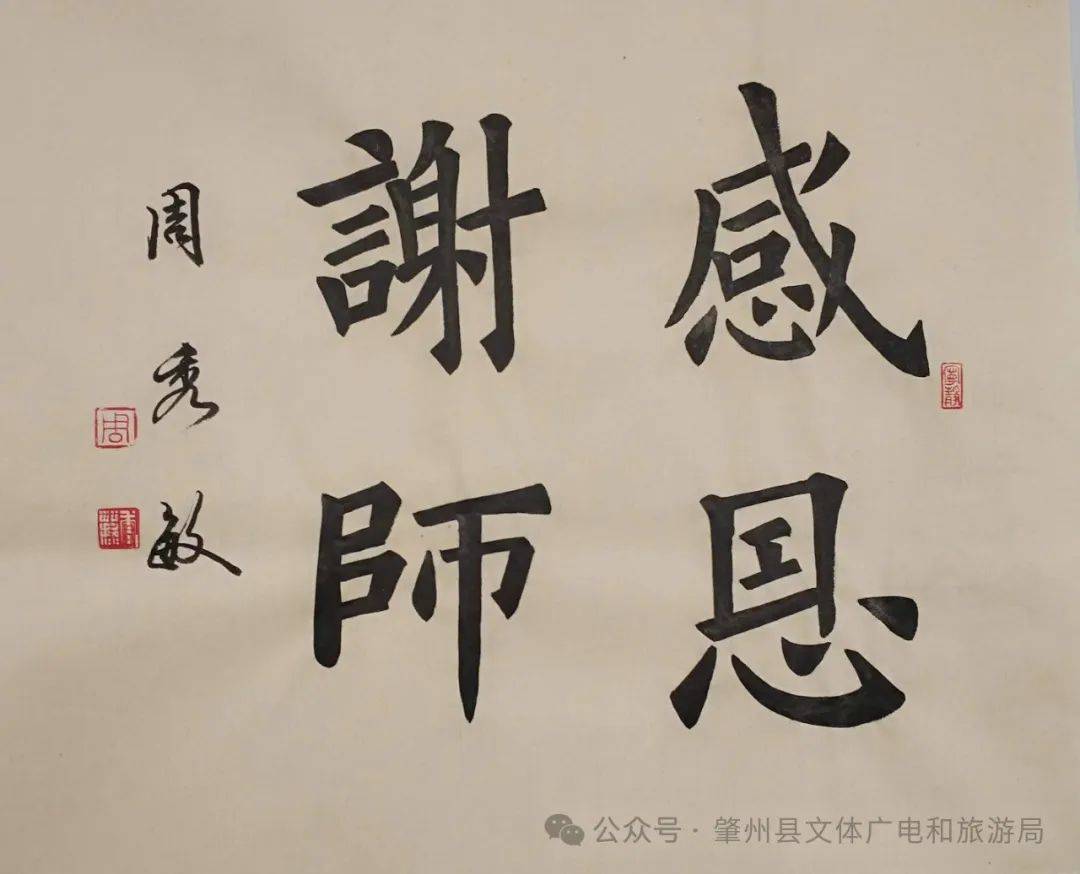 感恩
謝師
周秀敏
周
公众号·肇州县文体广电和旅游局